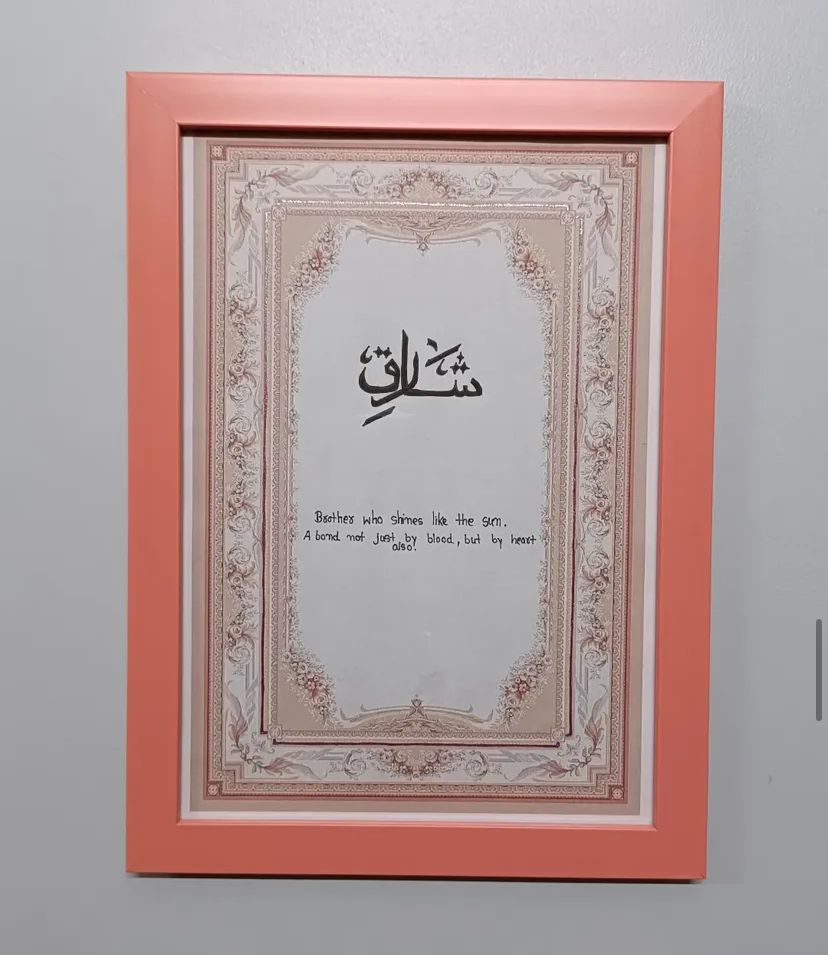 شَارِق
Brother who shines like the sun.
A bond not just by blood, but by heart
also!